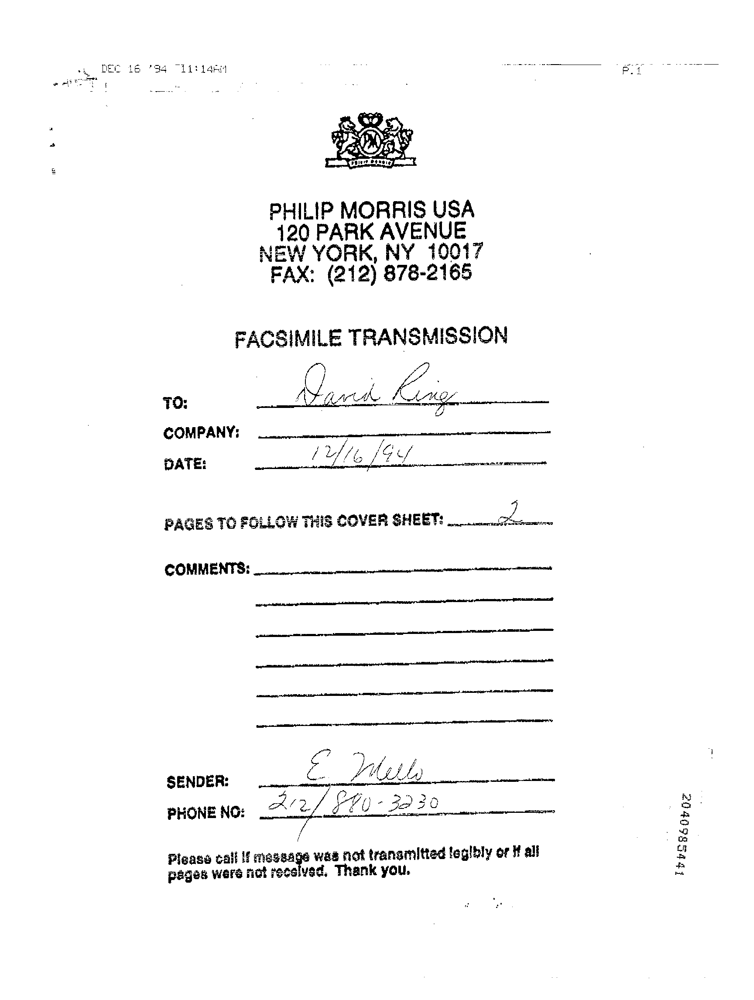 DEC 16 '94 11:14AM P.1
PM
PHILIP MORRIS
PHILIP MORRIS USA
120 PARK AVENUE
NEW YORK, NY 10017
FAX: (212) 878-2165
FACSIMILE TRANSMISSION
TO: David Ring
COMPANY:
DATE: 12/16/94
PAGES TO FOLLOW THIS COVER SHEET: 2
COMMENTS:
SENDER: E Mello
PHONE NO: 212/880-3230
Please call if message was not transmitted legibly or if all
pages were not received. Thank you.
2040985441